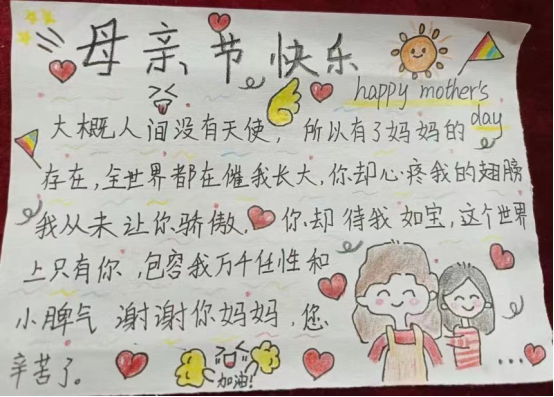 母亲节快乐
happy mother's
day
大概人间没有天使，所以有了妈妈的
存在，全世界都在催我长大，你却心疼我的翅膀
我从未让你骄傲，你却待我如宝，这个世界
上只有你，包容我万千任性和
小脾气 谢谢你妈妈，您
辛苦了。
加油!